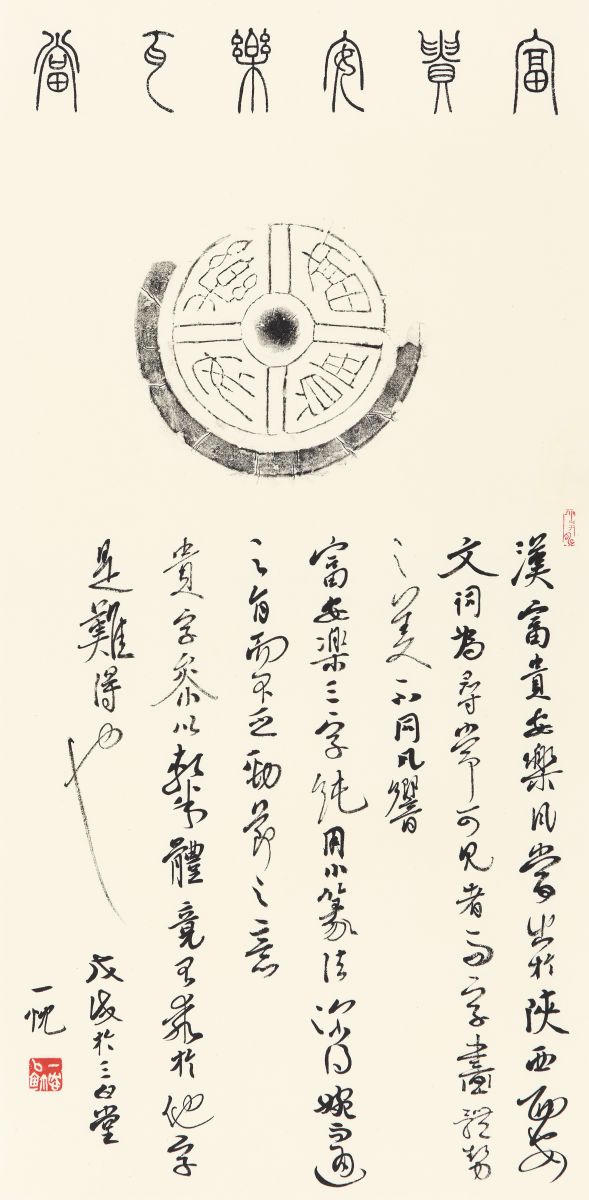 富貴安樂瓦當
漢富貴安樂瓦當出於陝西西安
文詞為尋常可見者而字畫體勢
之美不同凡響
富安樂三字純用小篆法深得婉通
之旨而不乏勁節之意
貴字參以體竟於他字
是難得也
戊戌於三堂
一